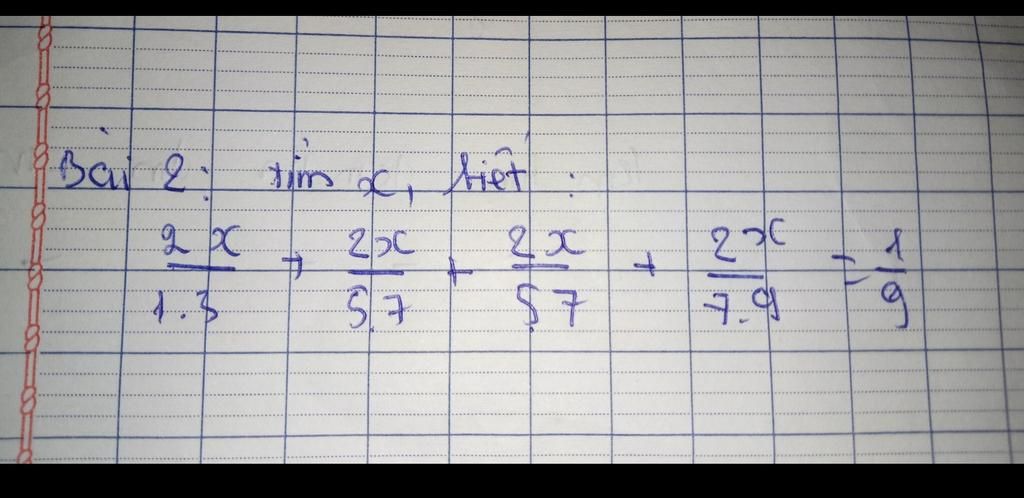 Bài 2: tìm x, biết :
2x/1.3 + 2x/5.7 + 2x/5.7 + 2x/7.9 = 1/9